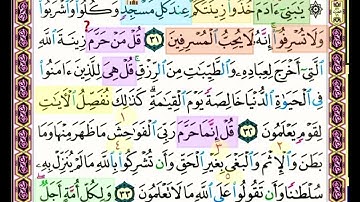 ۞ يَٰبَنِىٓ ءَادَمَ خُذُوا۟ زِينَتَكُمْ عِندَ كُلِّ مَسْجِدٍ وَكُلُوا۟ وَٱشْرَبُوا۟
وَلَا تُسْرِفُوٓا۟ إِنَّهُۥ لَا يُحِبُّ ٱلْمُسْرِفِينَ ٣١ قُلْ مَنْ حَرَّمَ زِينَةَ ٱللَّهِ
ٱلَّتِىٓ أَخْرَجَ لِعِبَادِهِۦ وَٱلطَّيِّبَٰتِ مِنَ ٱلرِّزْقِ قُلْ هِىَ لِلَّذِينَ ءَامَنُوا۟
فِى ٱلْحَيَوٰةِ ٱلدُّنْيَا خَالِصَةً يَوْمَ ٱلْقِيَٰمَةِ كَذَٰلِكَ نُفَصِّلُ ٱلْءَايَٰتِ
لِقَوْمٍ يَعْلَمُونَ ٣٢ قُلْ إِنَّمَا حَرَّمَ رَبِّىَ ٱلْفَوَٰحِشَ مَا ظَهَرَ مِنْهَا وَمَا
بَطَنَ وَٱلْإِثْمَ وَٱلْبَغْىَ بِغَيْرِ ٱلْحَقِّ وَأَن تُشْرِكُوا۟ بِٱللَّهِ مَا لَمْ يُنَزِّلْ بِهِۦ
سُلْطَٰنًا وَأَن تَقُولُوا۟ عَلَى ٱللَّهِ مَا لَا تَعْلَمُونَ ٣٣ وَلِكُلِّ أُمَّةٍ أَجَلٌ